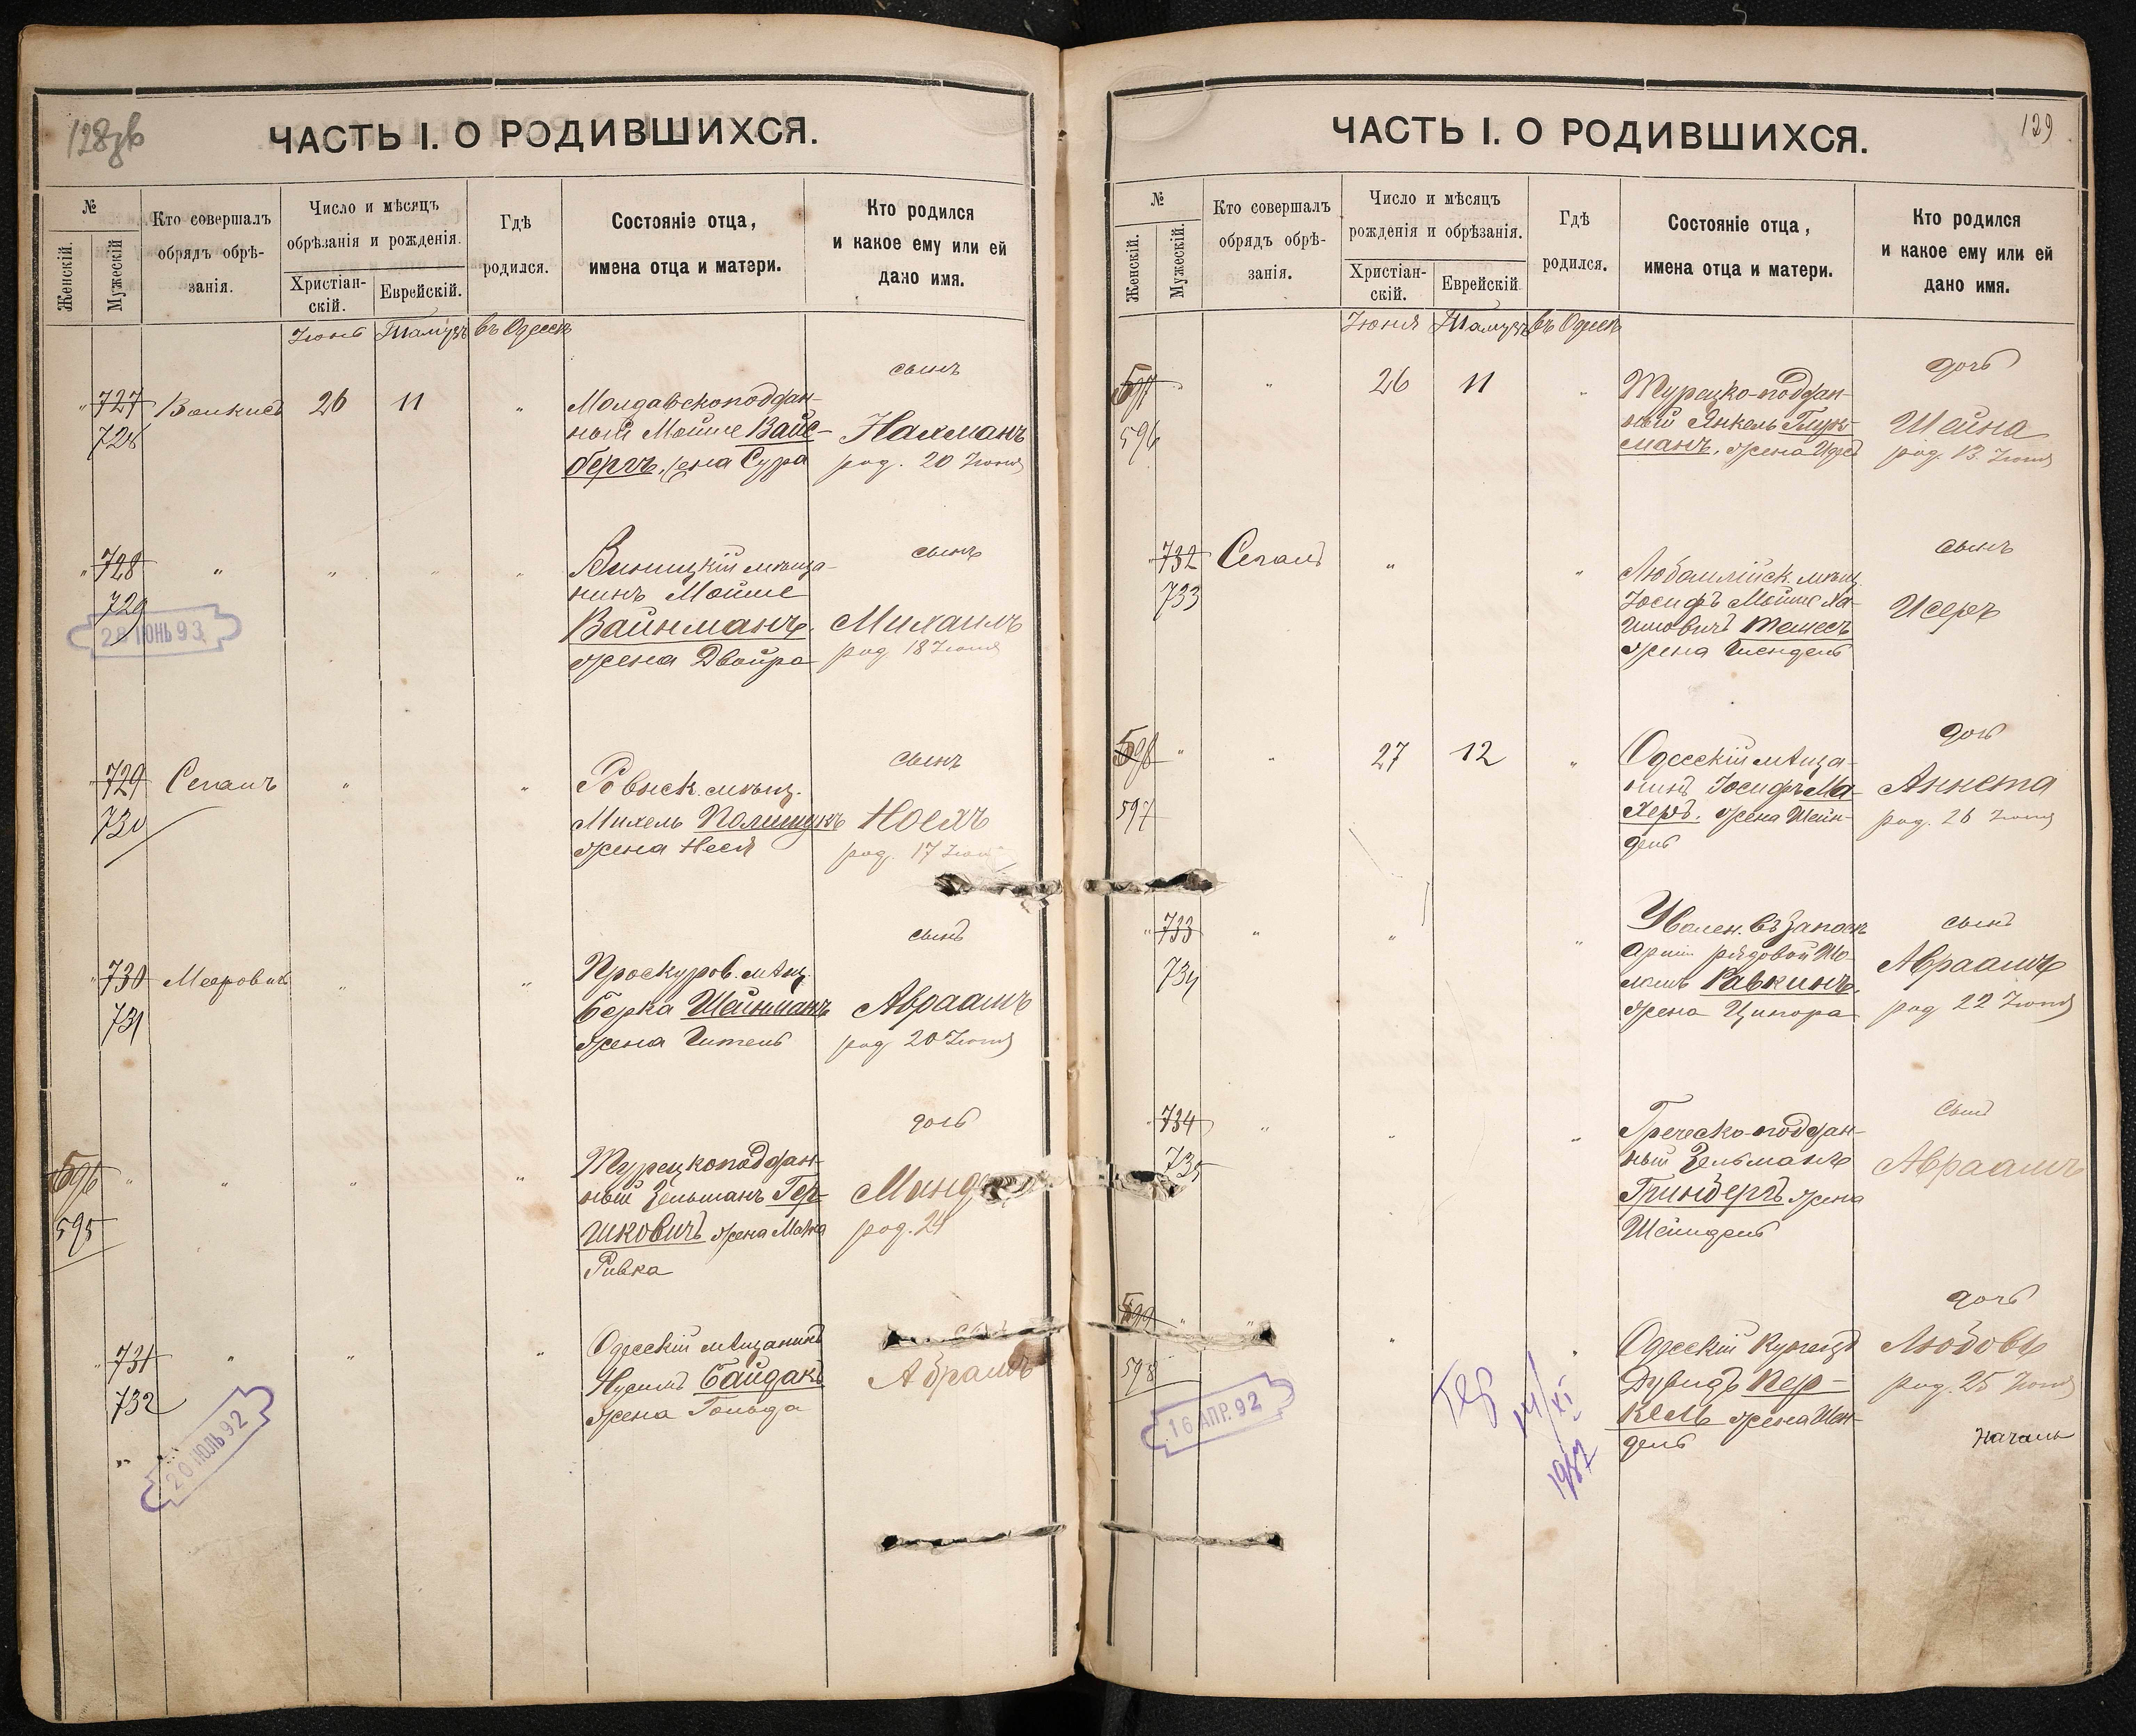 128зв
ЧАСТЬ I. О РОДИВШИХСЯ.
№
Женскій.
Мужескій
Кто совершалъ
обрядъ обрѣ-
занія.
Число и мѣсяцъ
обрѣзанія и рожденія.
Христіан-
скій.
Еврейскій.
Гдѣ
родился.
Состояніе отца,
имена отца и матери.
Кто родился
и какое ему или ей
дано имя.
Іюнь Тамузъ въ Одессѣ
727
728
26 11
Молдавскоподдан-
ный Мойше Вайс-
бергъ, жена Сура
сынъ
Нахманъ
род. 20 Іюня
728
729
28 ІЮНЬ 93
Виницкій мѣща-
нинъ Мойше
Вайнманъ.
жена Двойра
сынъ
Михаилъ
род 18 Іюня
729
730
Сегалъ
Ровнск. мѣщ.
Михель Полищукъ
жена Неся
сынъ
Ноехъ
род. 17 Іюн
730
731
Мееровичъ
Проскуров. мѣщ.
Берка Шейнманъ
жена Гитель
сынъ
Авраамъ
род 20 Іюня
596
595
Турецкоподдан-
ный Зельманъ Гер-
шковичъ жена Малка
Ривка
дочь
род. 24
731
732
20 ІЮЛЬ 92
Одесскій мѣщанинъ
Нусимъ Байдакъ
жена Гольда
Абрамъ
129
ЧАСТЬ I. О РОДИВШИХСЯ.
№
Женскій.
Мужескій.
Кто совершалъ
обрядъ обрѣ-
занія.
Число и мѣсяцъ
рожденія и обрѣзанія.
Христіан-
скій.
Еврейскій
Гдѣ
родился.
Состояніе отца,
имена отца и матери.
Кто родился
и какое ему или ей
дано имя.
Іюня Тамузъ въ Одессѣ
597
596
26 11
Турецко-поддан-
ный Янкель
манъ, жена
дочь
Шейна
род. 13 Іюня
732
733
Сегалъ
Любомлійск. мѣщ.
Іосифъ Мойше Ха-
имовичъ
жена Шендель
сынъ
Исеръ
598
597
27 12
Одесскій мѣща-
нинъ Іосифъ Ма-
херъ. жена Шейн-
дель
дочь
Аннета
род. 26 Іюня
733
734
Уволен. въ запасъ
арміи рядовой Шо-
ломъ Равкинъ.
жена Ципора
сынъ
Авраамъ
род 22 Іюня
734
735
Греческо-поддан-
ный Зельманъ
Гринбергъ жена
Шейндель
сынъ
Авраамъ
599
598
16 АПР. 92
14/XI
1987
Одесскій купецъ
Дувидъ Пер-
кель жена Шен-
дель
дочь
Любовь
род. 25 Іюня